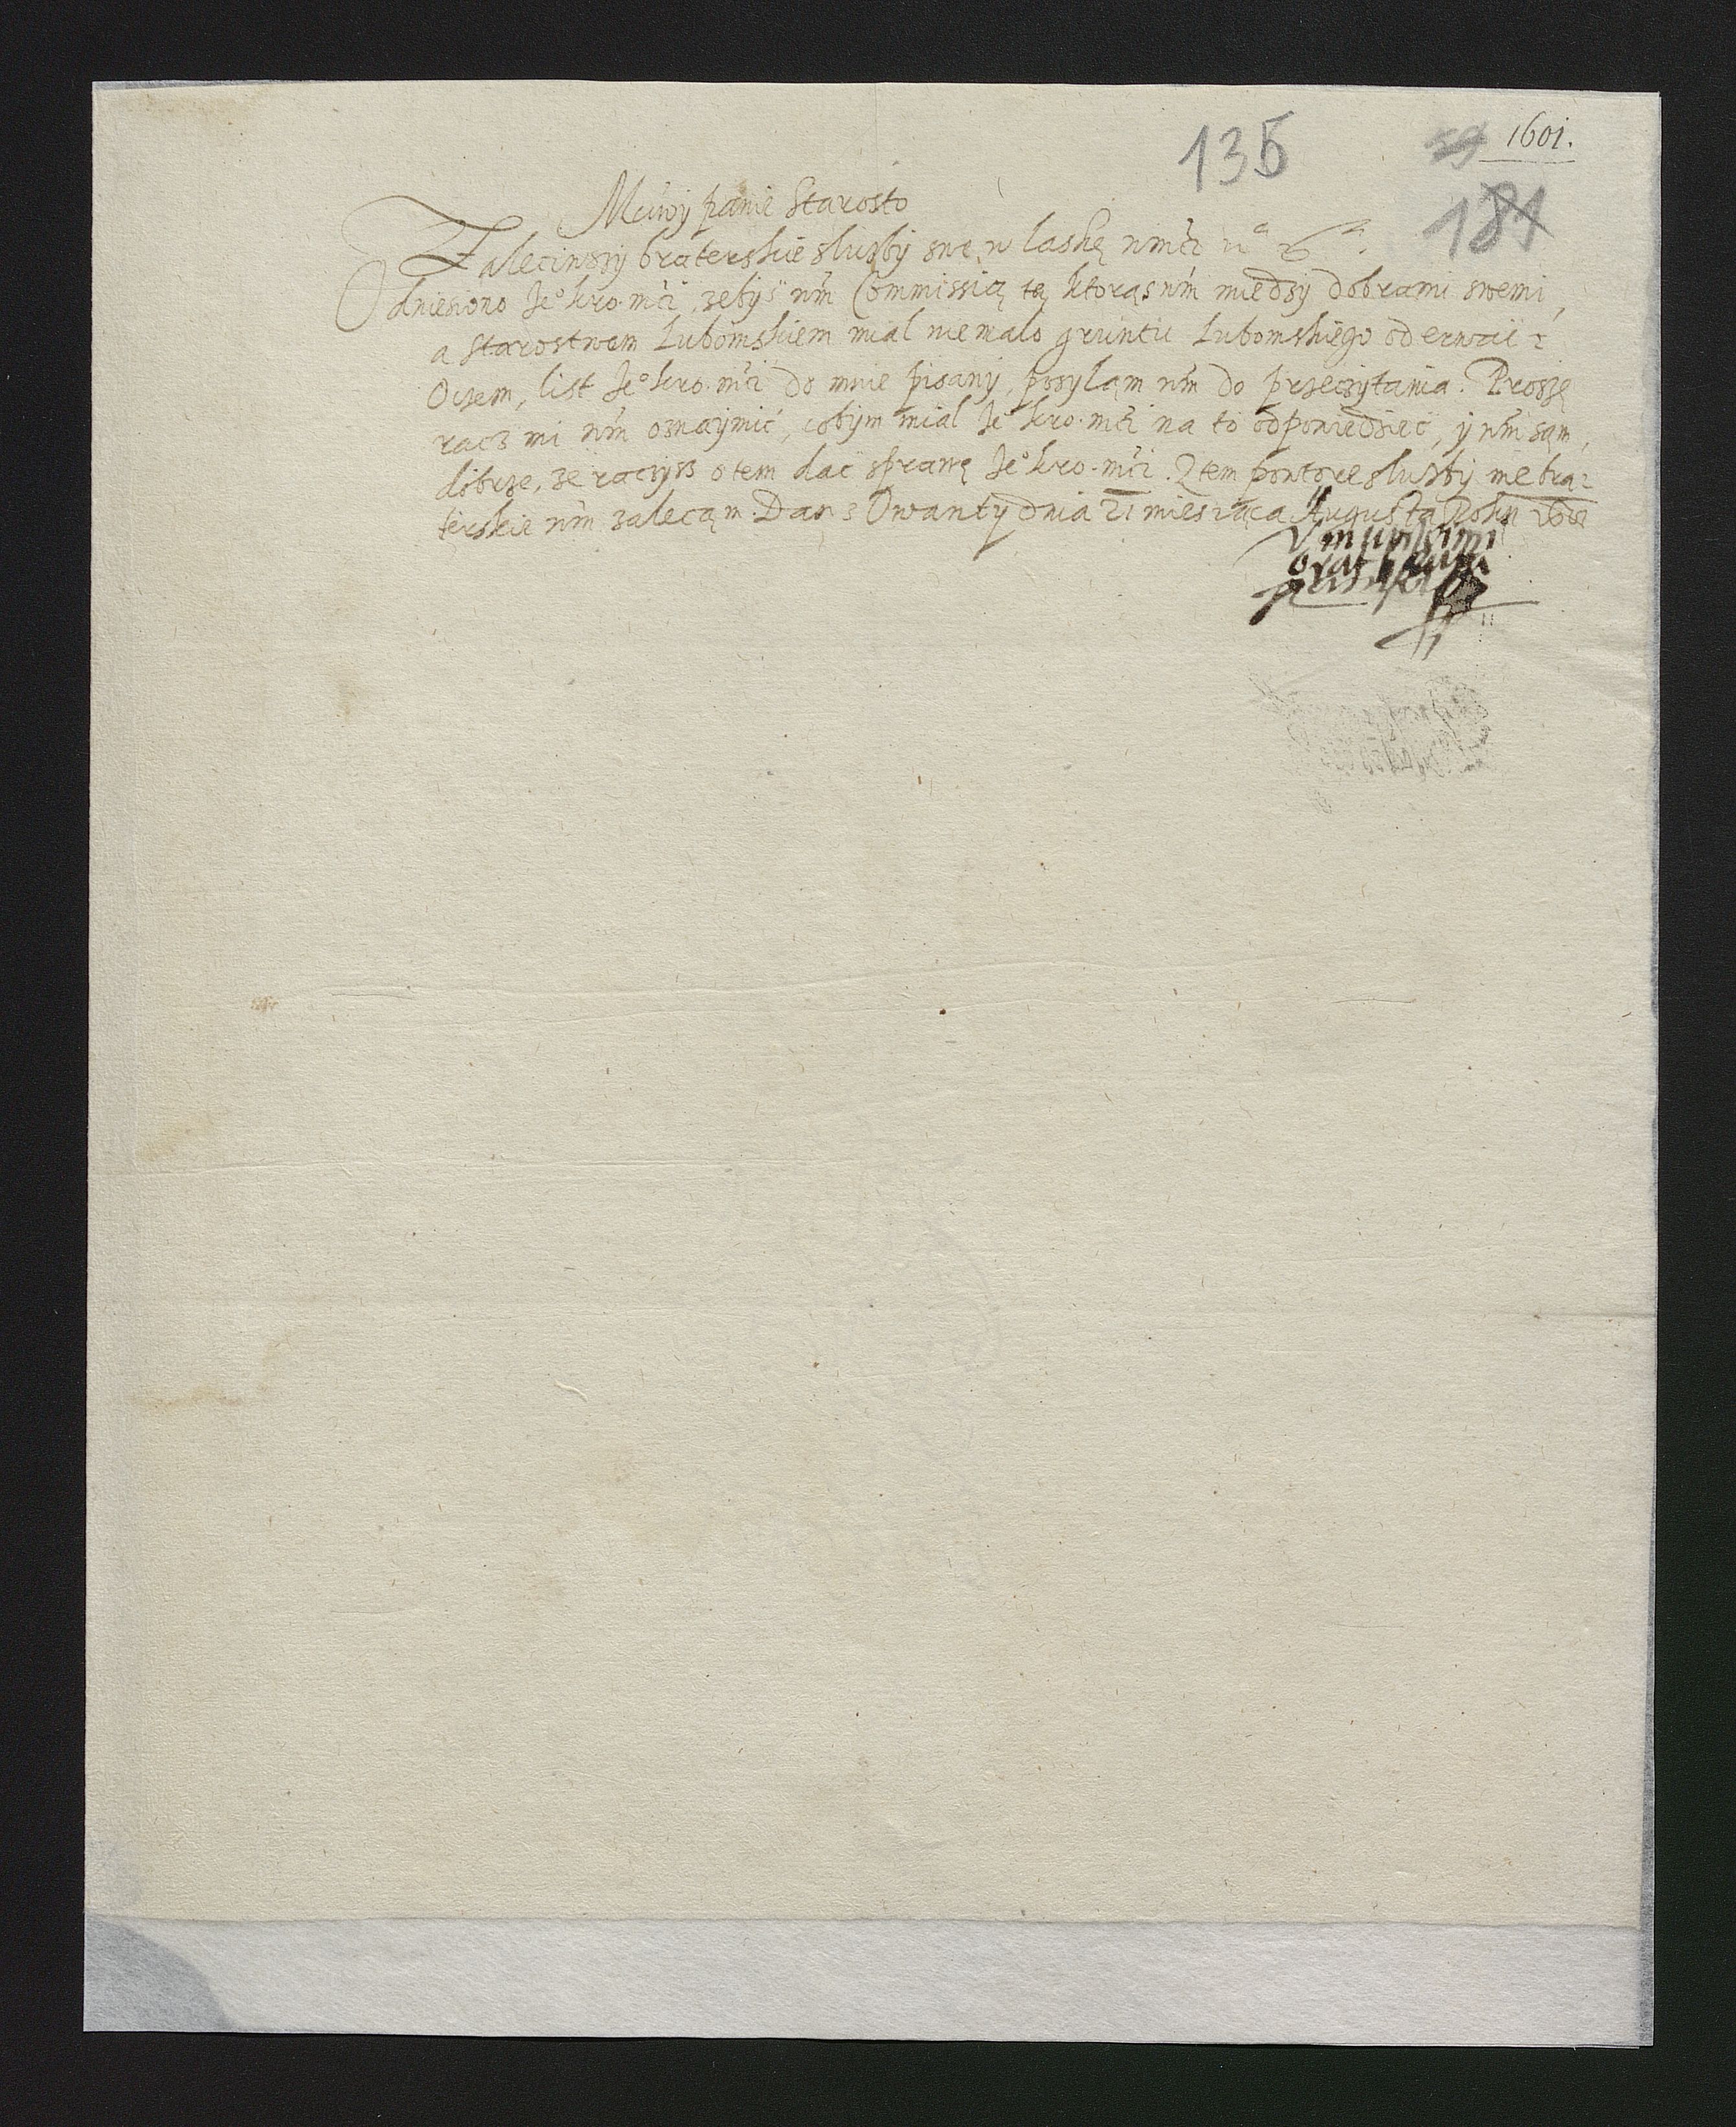 1601.
135
181
Mciwy panie Starosto
Zaleciwszy braterskie sluzby swe w laskę wmći
Odniesiono Je° kro. mći, zebyś wm Commissią tą ktorąs wm miedzy dobrami swemi,
a Starostwem Lubomskiem mial niemalo gruntu Lubomskiego oderwać:
Oczem, list Je° kro. mći do mnie pisany, posyląm wm do przeczytania. Proszę
racz mi wm oznaymić, cobym mial Je° kro. mći na to odpowiedzieć, y wm sąm,
dobrze, ze raczysz o tem dać sprawę Je° kro. mći. Ztem powtore sluzby me bra:
terskie wm zalecąm. Dan z Dnia 21 miesiąca Augusta Roku